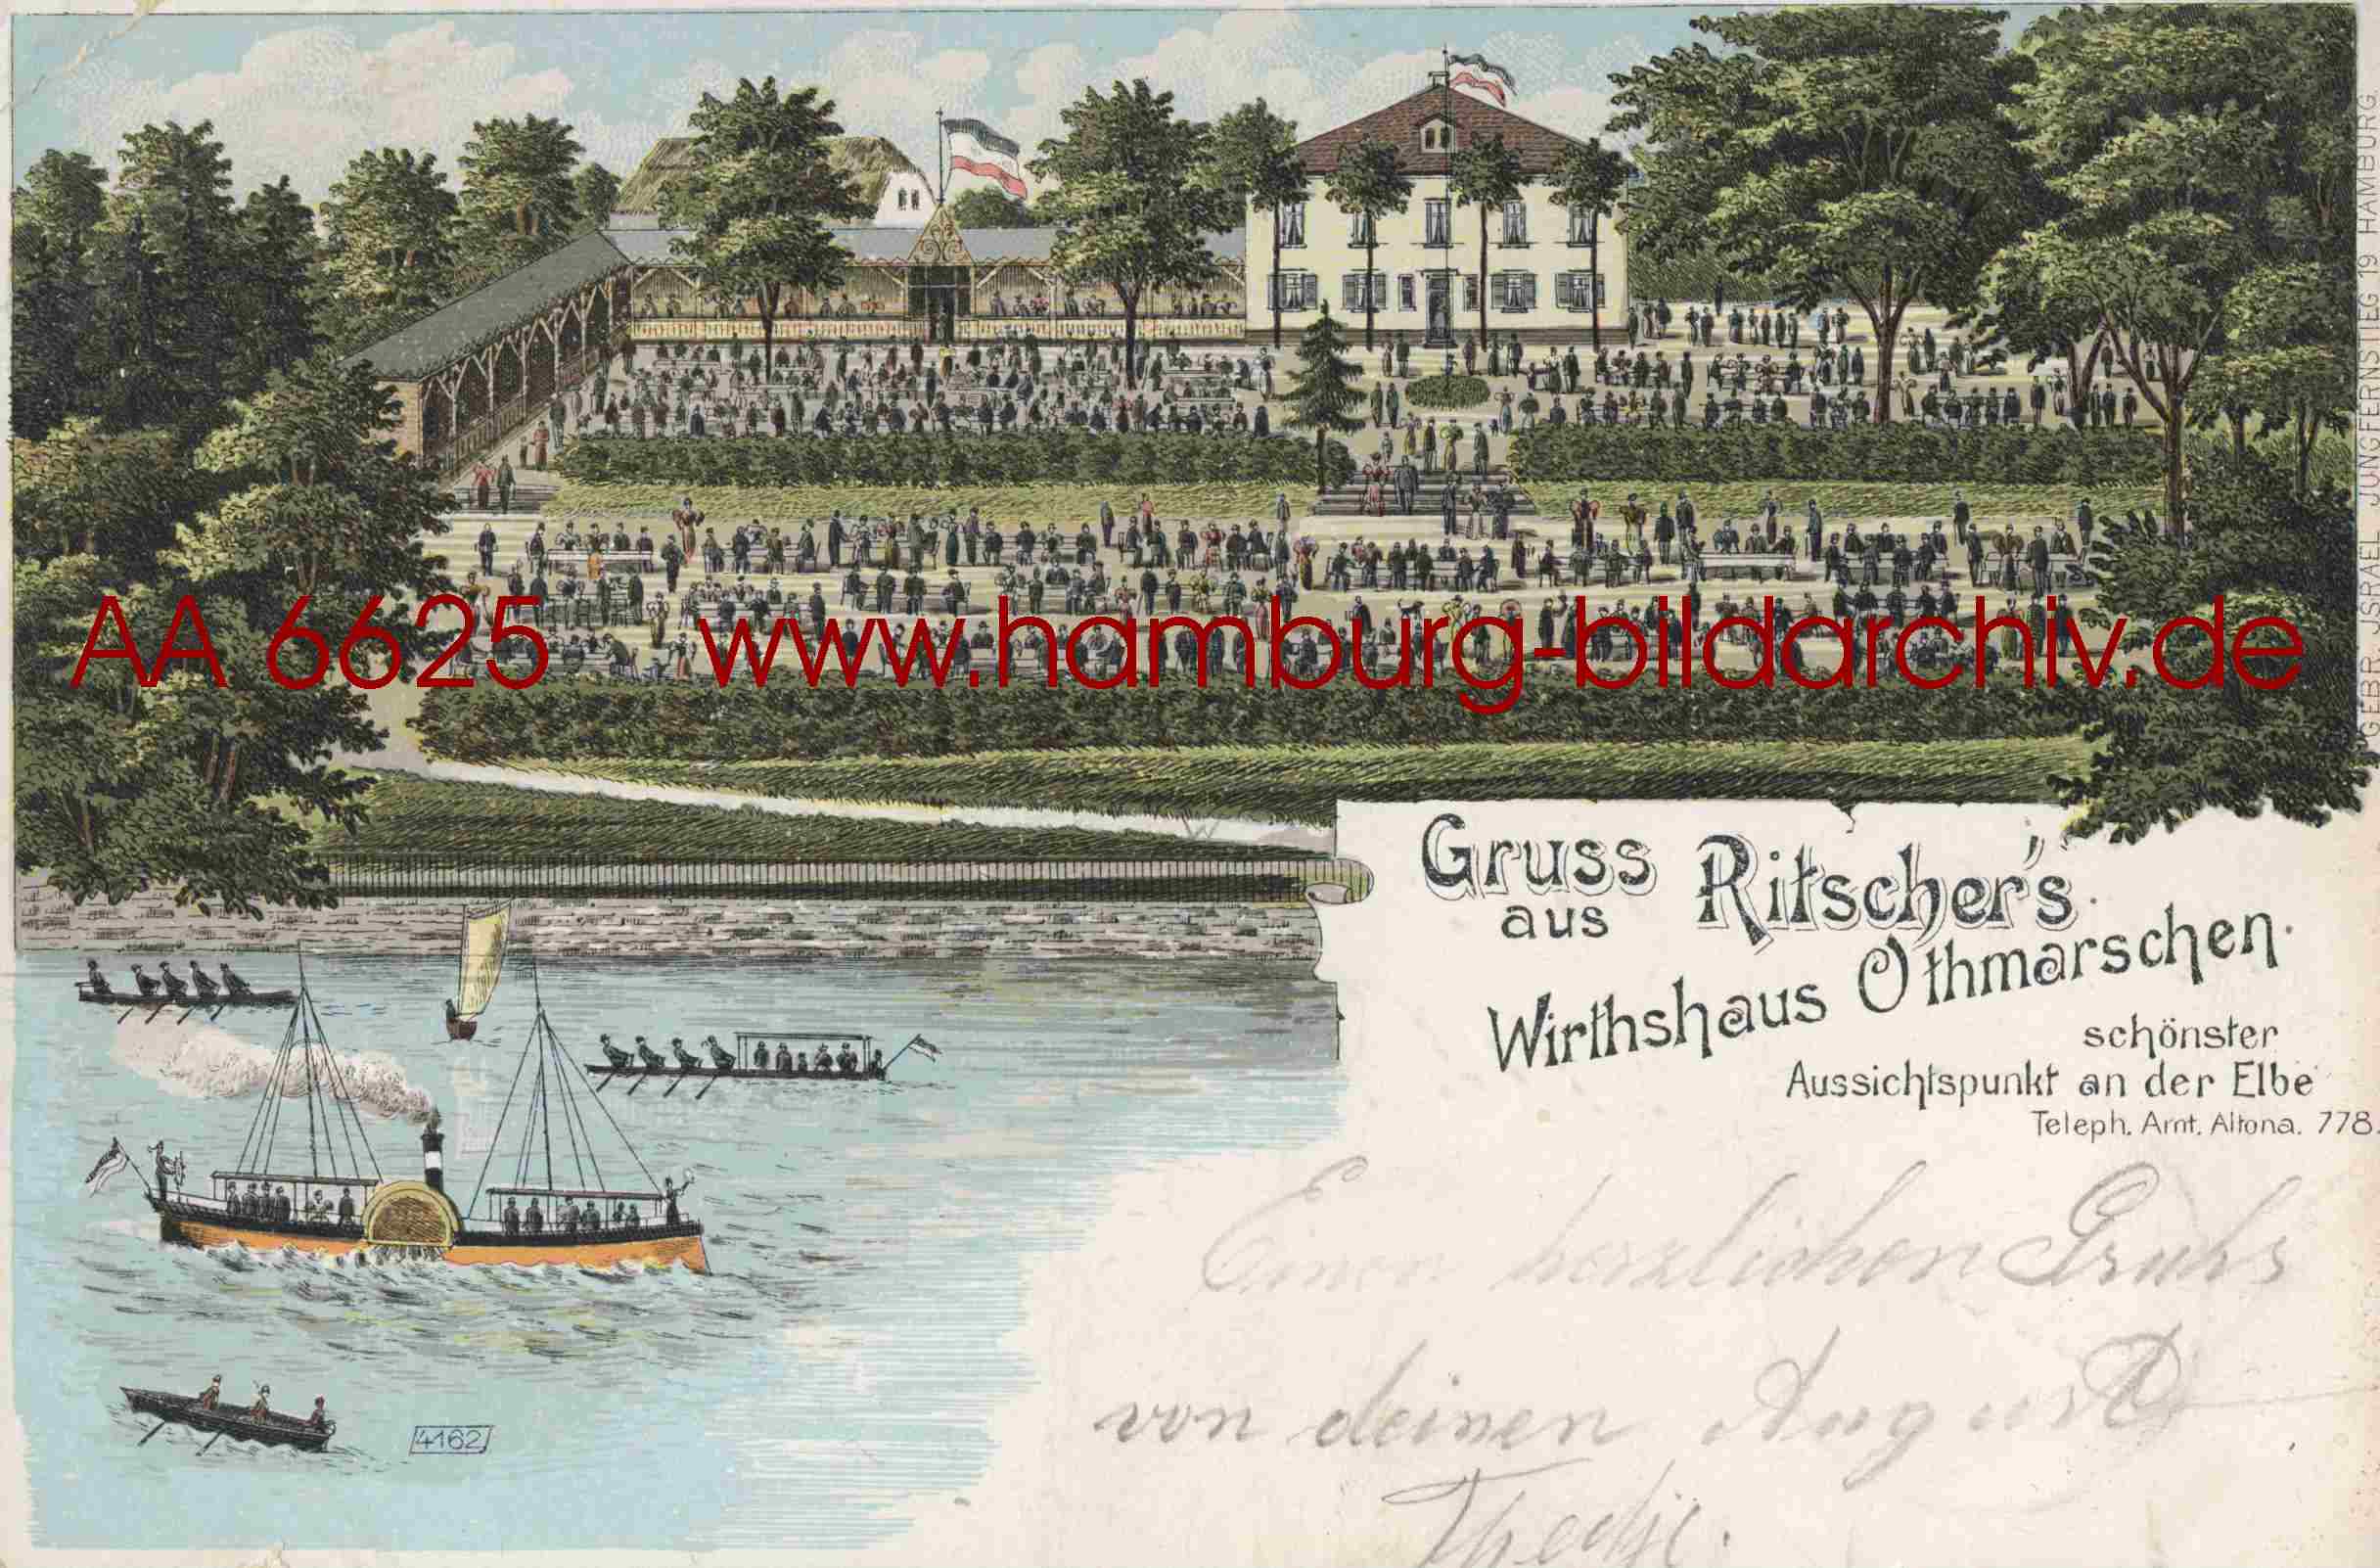 GEBR. ISRAEL, JUNGFERNSTIEG 19 HAMBURG.
AA 6625 www.hamburg-bildarchiv.de
Gruss aus Ritscher's
Wirthshaus Othmarschen.
schönster
Aussichtspunkt an der Elbe
Teleph. Amt. Altona. 778.
Einen herzlichen Gruhs
von deinen August
4162